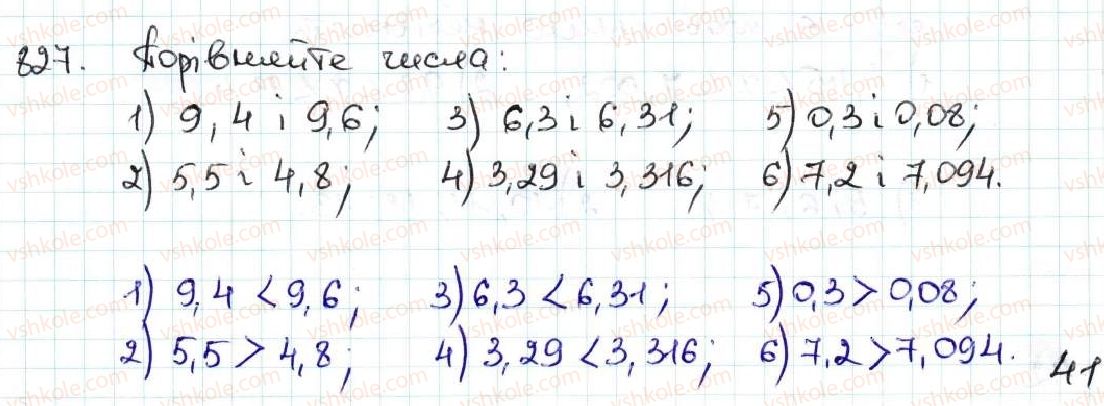 827. Порівняйте числа:
1) 9,4 і 9,6; 3) 6,3 і 6,31; 5) 0,3 і 0,08;
2) 5,5 і 4,8; 4) 3,29 і 3,316; 6) 7,2 і 7,094.
1) 9,4 < 9,6; 3) 6,3 < 6,31; 5) 0,3 > 0,08;
2) 5,5 > 4,8; 4) 3,29 < 3,316; 6) 7,2 > 7,094.
41
vshkole.com